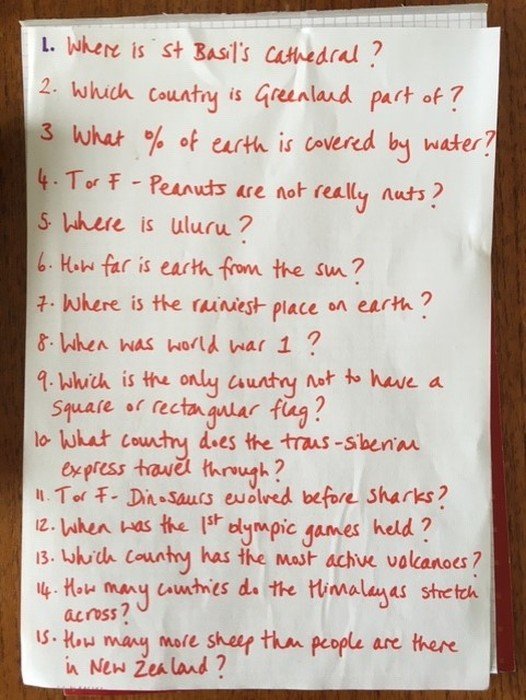 1. Where is St Basil's Cathedral?
2. Which country is Greenland part of?
3 What % of earth is covered by water?
4. T or F - Peanuts are not really nuts?
5. Where is uluru?
6. How far is earth from the sun?
7. Where is the rainiest place on earth?
8. When was world war 1?
9. Which is the only country not to have a
square or rectangular flag?
10. What country does the trans-siberian
express travel through?
11. T or F - Dinosaurs evolved before sharks?
12. When was the 1st olympic games held?
13. Which country has the most active volcanoes?
14. How many countries do the Himalayas stretch
across?
15. How many more sheep than people are there
in New Zealand?